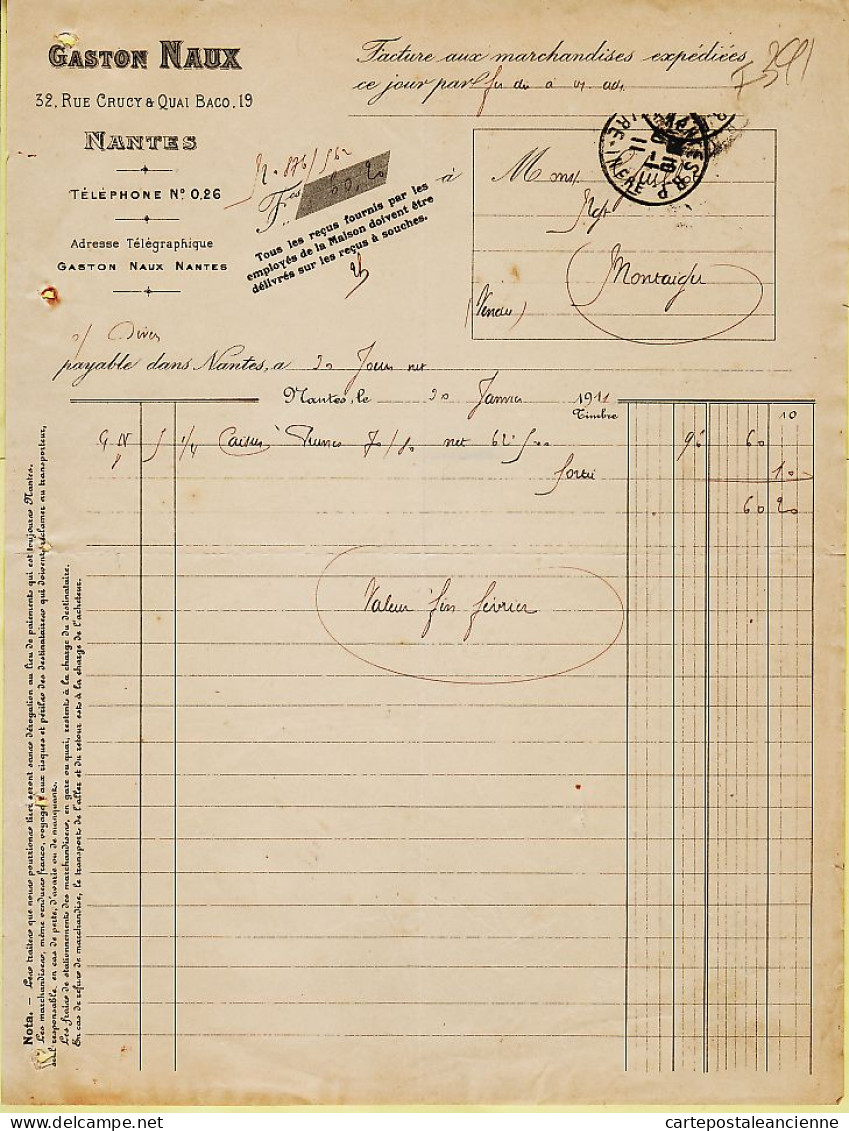 GASTON NAUX
32, RUE CRUCY & QUAI BACO, 19
NANTES
TÉLÉPHONE Nº 0,26
Adresse Télégraphique
GASTON NAUX NANTES
Facture aux marchandises expédiées
ce jour par
Fcs 60,20
Tous les reçus fournis par les
employés de la Maison doivent être
délivrés sur les reçus à souches.
à
Mons
Montaigu
(Vendu)
payable dans Nantes, à 30 Jours net
Nantes, le 20 Janvier 1911
Timbre 10
G N 5 1/4 Caisses Prunes 70/80 net 62
96 60
10
60 20
Valeur fin février
Nota. — Les traites que nous pourrions tirer seront sans dérogation au lieu de paiement qui est toujours Nantes.
Les marchandises, même vendues franco, voyagent aux risques et périls des destinataires qui doivent réclamer au transporteur,
seul responsable, en cas de perte, d'avarie ou de manquants.
Les frais de stationnement des marchandises, en gare ou quai, restent à la charge du destinataire.
En cas de refus de marchandise, le transport de l'aller et du retour est à la charge de l'acheteur.
cartepostaleancienne